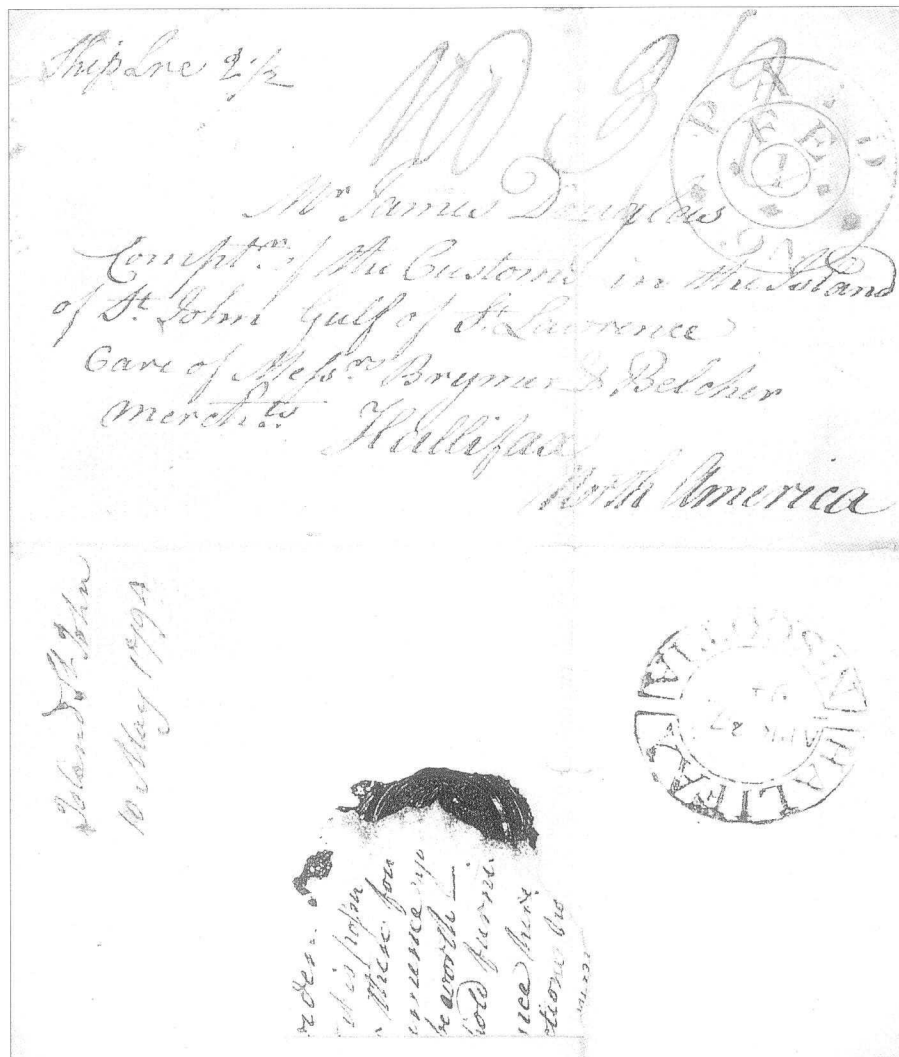 Ship Lre 2 1/2
PAID
FEE
1
Mr James Douglas
Comptr. of the Customs in the Island
of St. John Gulf of St. Lawrence
Care of Messrs. Brymer & Belcher
Merchts. Hallifax
North America
Island St. John
10 May 1794
HALIFAX
A SCOTIA
APR 27
94
these fou
be worth —
hold furni